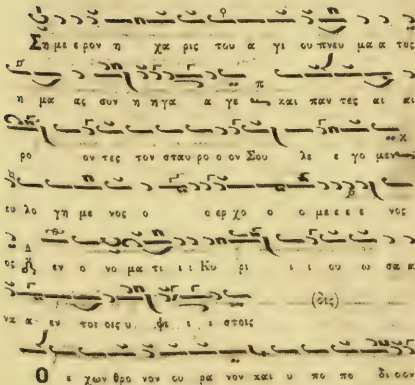 Ση με ε ρον η χα ρις του α γι ου πνευ μα α τος
η μα ας συν η η γα α γε και παν τες αι αι
ρο ον τες τον σταυ ρο ο ον Σου λε ε γο μεν
ευ λο γη με νος ο ο ερ χο ο ο με ε ε ε νος
εν ο νο μα τι ι ι Κυ ρι ι ι ου ω σα α
να α εν τοις υ ψι ι ι στοις (δις)
Ο ε χων θρο νον ου ρα νον και υ πο πο δι ο ον